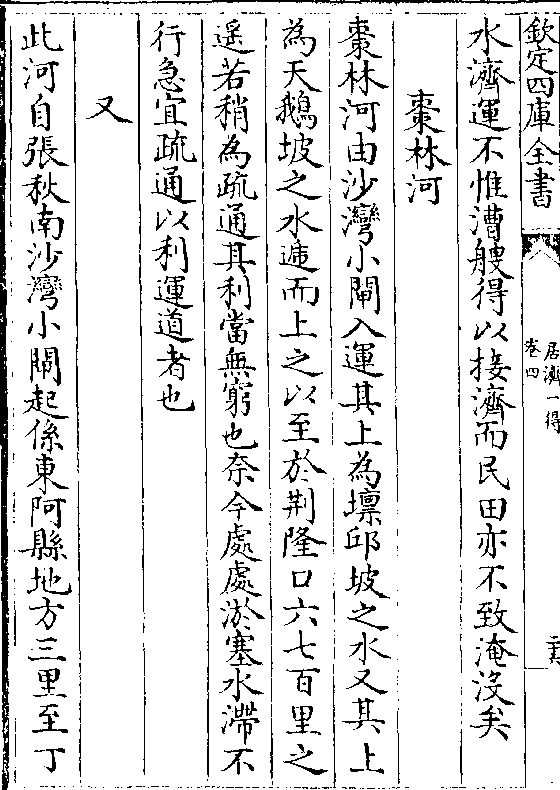 欽定四庫全書
居濟一得
卷四
水濟運不惟漕艘得以接濟而民田亦不致淹沒矣
棗林河
棗林河由沙灣小閘入運其上為壊邱坡之水又其上
為天鵝坡之水遞而上之以至於荆隆口六七百里之
遥若稍為疏通其利當無窮也奈今處處淤塞水滯不
行急宜疏通以利運道者也
又
此河自張秋南沙灣小閘起係東阿縣地方三里至丁